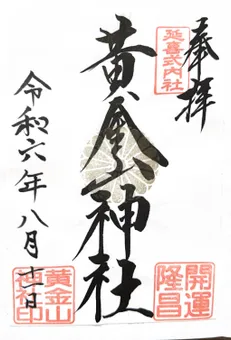 奉拝
延喜式内社
黄金神社
開運
隆昌
令和六年八月十一日
黄金山
神社印